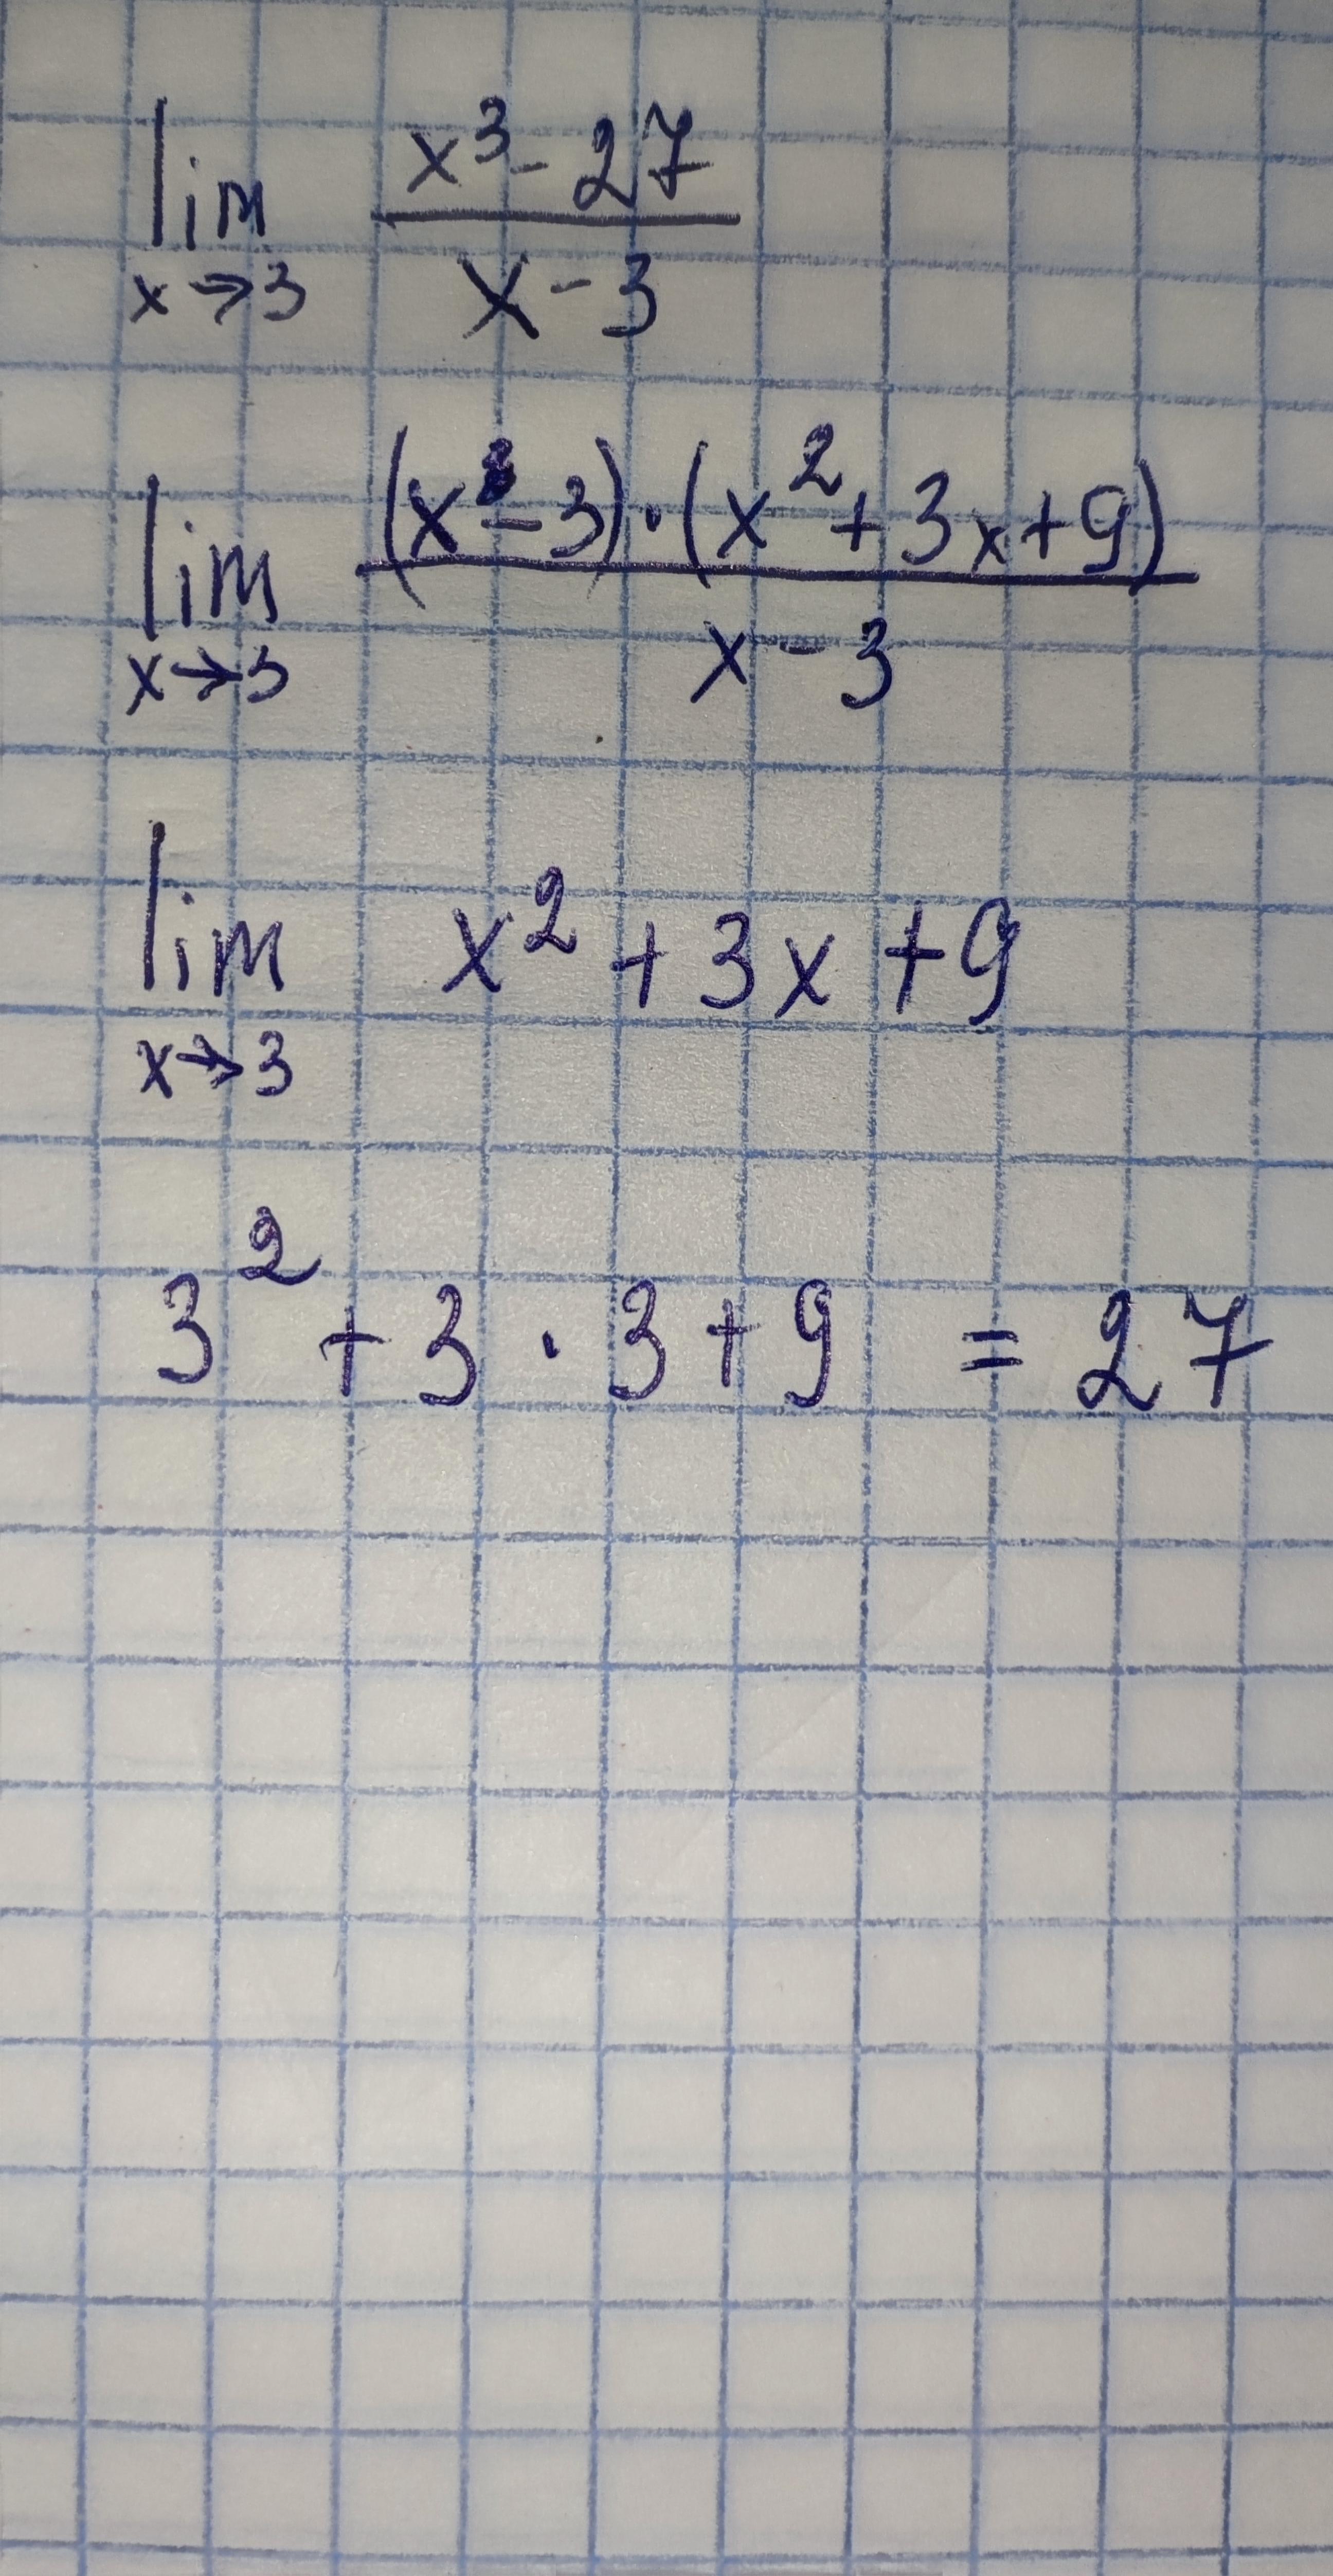 lim x→3 (x³ - 27)/(x - 3)
lim x→3 ((x - 3)·(x² + 3x + 9))/(x - 3)
lim x→3 x² + 3x + 9
3² + 3 · 3 + 9 = 27